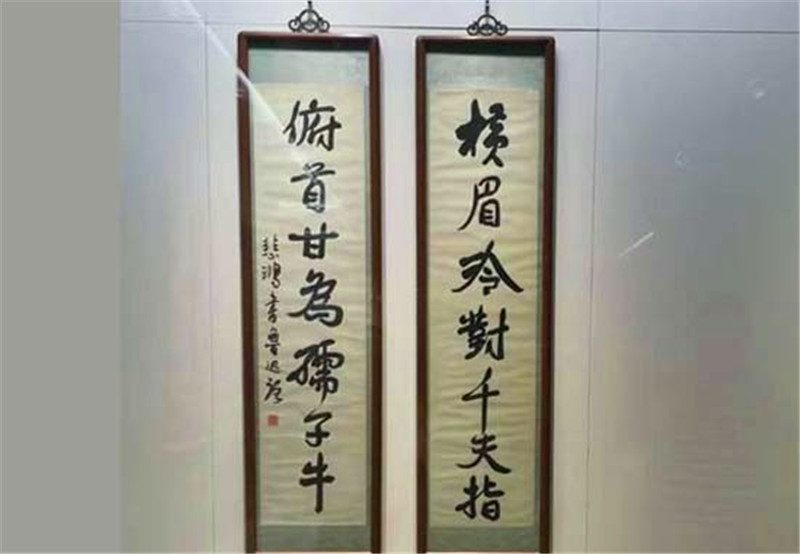 橫眉冷對千夫指
俯首甘為孺子牛
悲鴻書魯迅